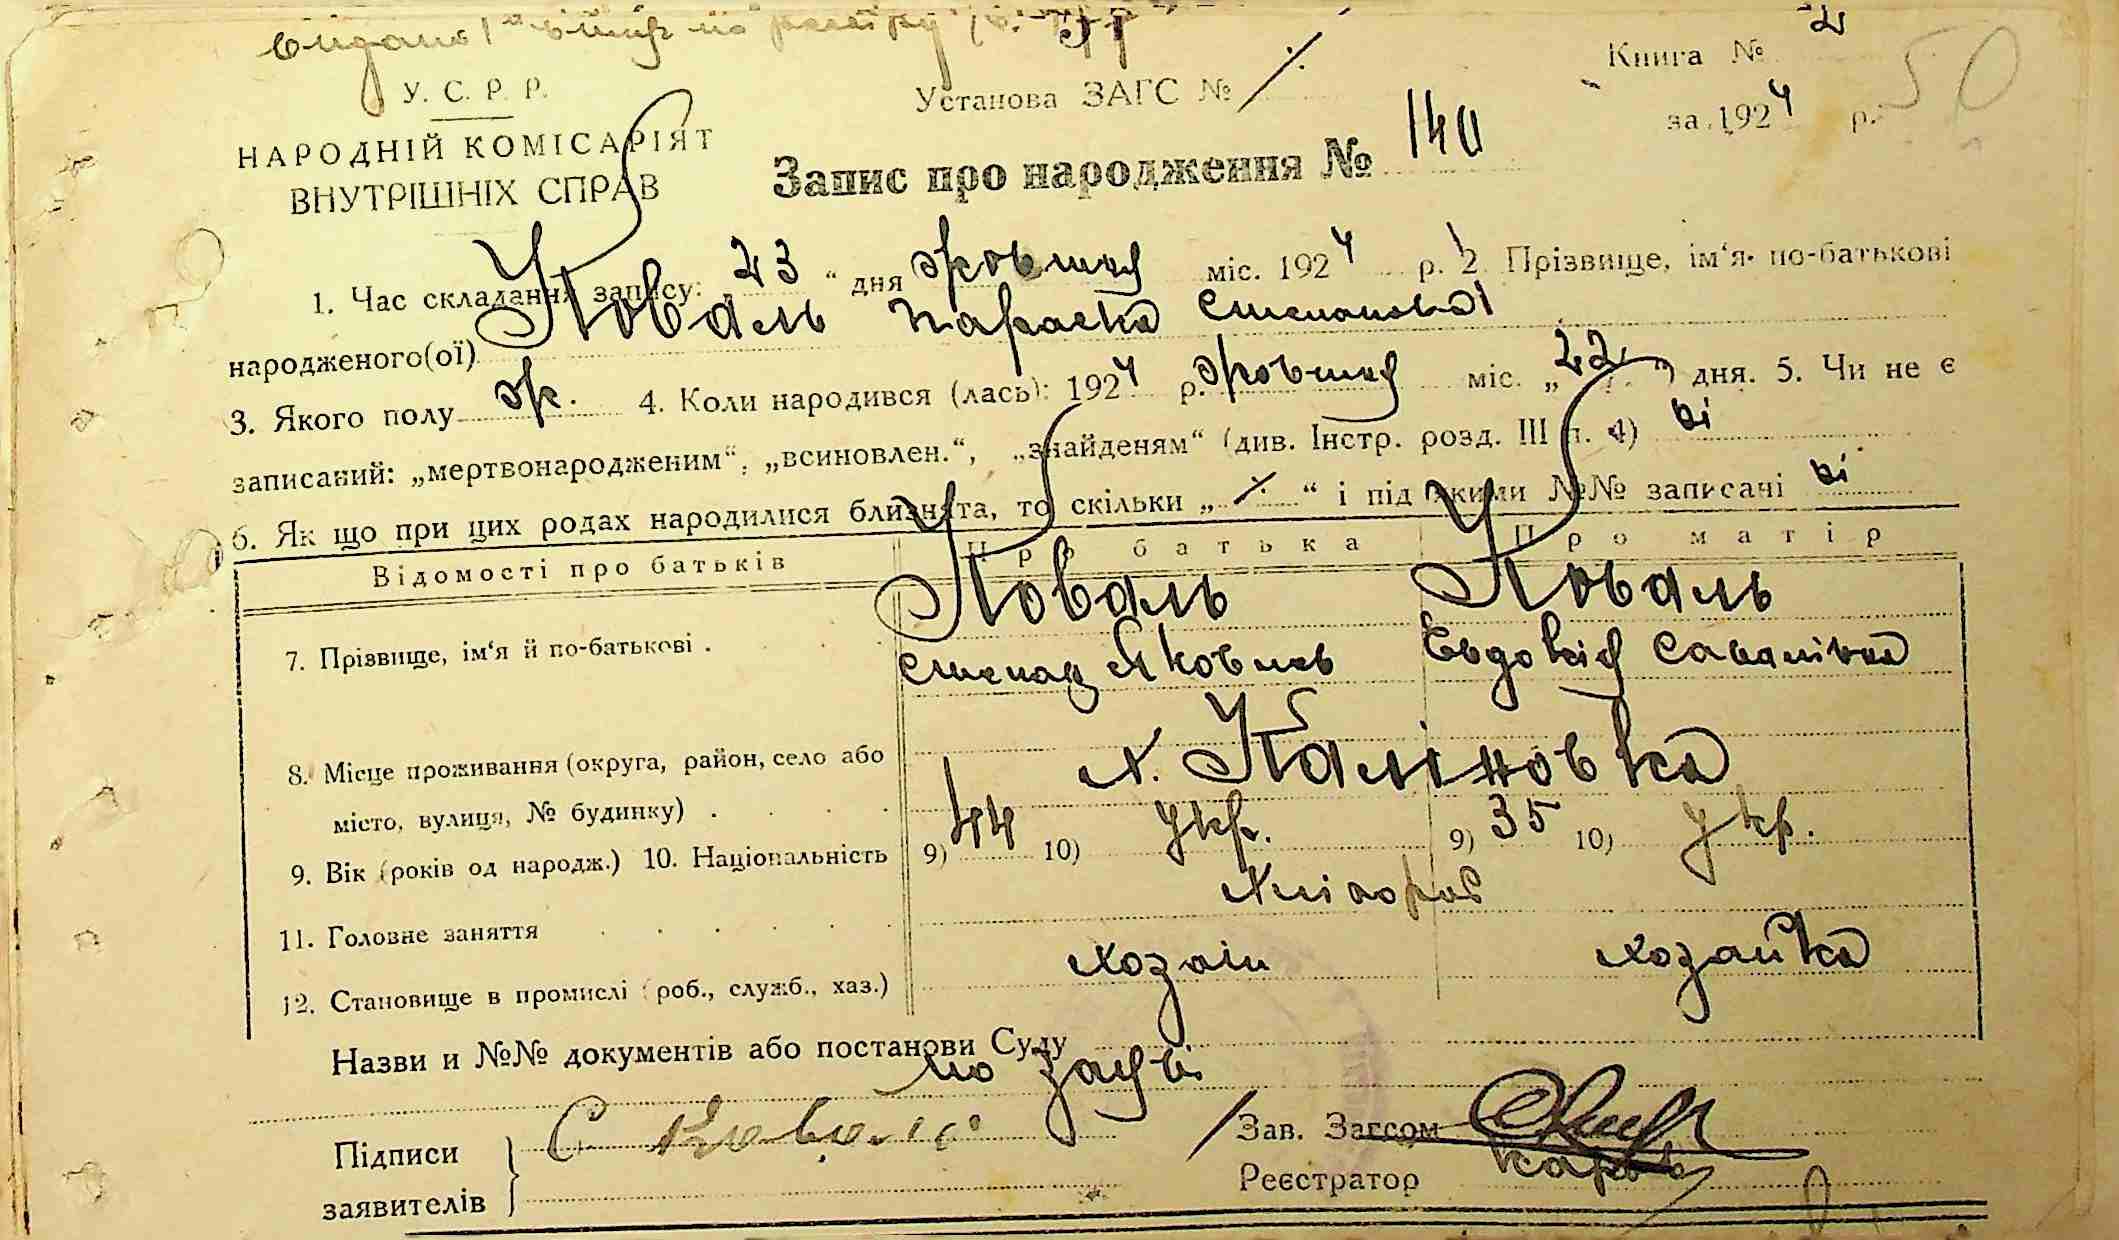 У. С. Р. Р.
НАРОДНІЙ КОМІСАРІЯТ
ВНУТРІШНІХ СПРАВ
Установа ЗАГС №
Книга № 2
за 1924 р.
50
Запис про народження № 140
1. Час складання запису: 23 " дня жовтня міс. 1924 р. 2. Прізвище, ім'я по-батькові
народженого(ої) Коваль Параска Степанова
3. Якого полу ж. 4. Коли народився (лась): 1924 р. жовтня міс. „22" дня. 5. Чи не є
записаний: „мертвонародженим", „всиновлен.", „знайденям" (див. Інстр. розд. III п. 4) ні
6. Як що при цих родах народилися близнята, то скільки „ " і під якими №№ записачі ні
Відомості про батьків Про батька Про матір
Коваль Коваль
7. Прізвище, ім'я й по-батькові . Степан Яковлев Евдокія Саванівна
8. Місце проживання (округа, район, село або
місто, вулиця, № будинку) . х. Калїновка
9. Вік (років од народж.) 10. Національність 9) 44 10) укр. 9) 35 10) укр.
11. Головне заняття Хлібороб
12. Становище в промислі (роб., служб., хаз.) хозяін хозяйка
Назви и №№ документів або постанови Суду
по заяві
Підписи
заявителів
С Коваль
Зав. Загсом
Реєстратор